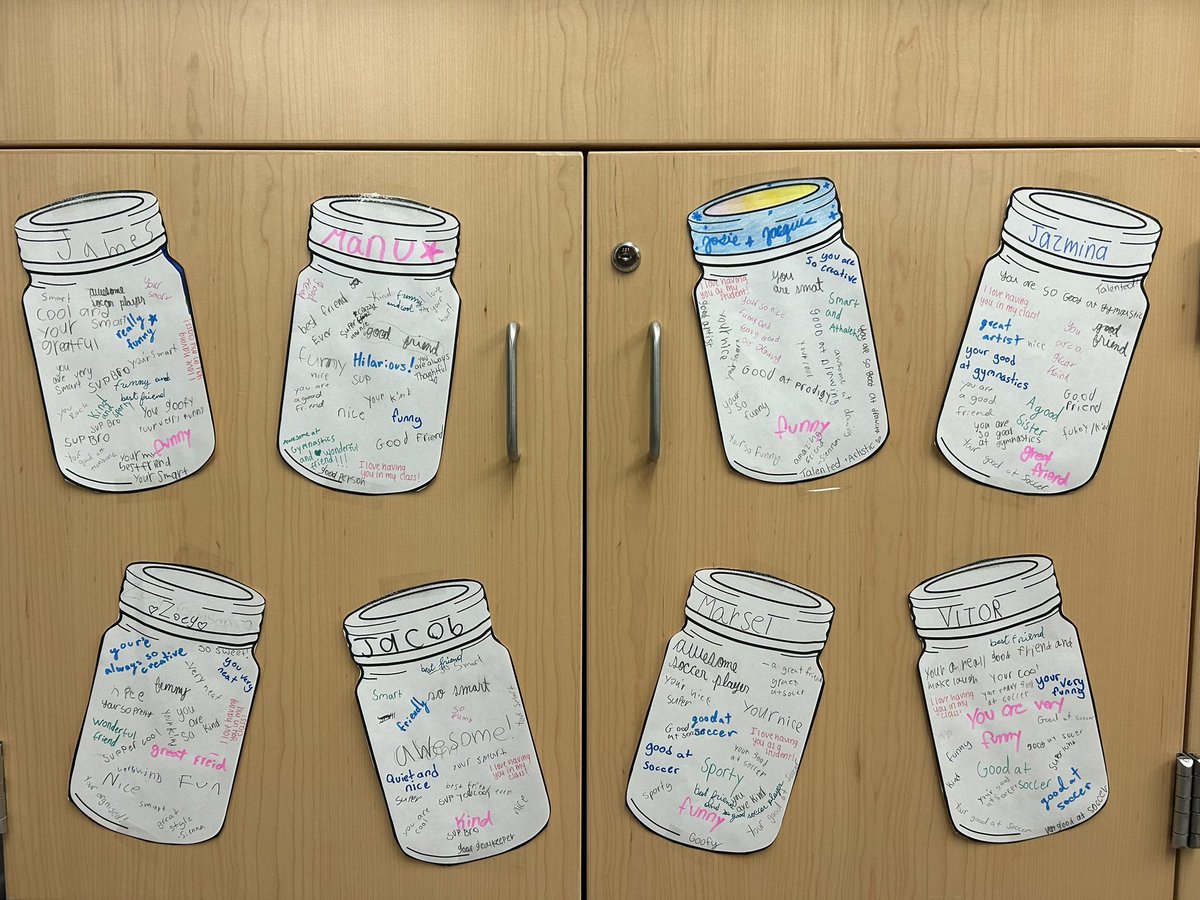 James
Smart
awesome
soccer player
Your
smart
cool and
your Smart
greatful
really
funny
I love having
you in my class!
you
are very
smart
Your Smart
SUP BRO
funny and
best friend
you Rock
Kind
and
sporty
SUP BRO
You goofy
Your very funny
SUP BRO
funny
your my
best friend
Your Smart
Manu
best friend
Ever
kind
funny
and cool
super
good
friend
funny
Hilarious!
nice
SUP
you are
always
Thoughtful
you are
a good
friend
Your kind
nice
funny
Awesome at
Gymnastics
and wonderful
friend!!!
Good friend
I love having
you in my class!
good person
Josie + Jacquie
you are
so creative
I love having
you as my
student!
you
are smat
Smart
and
Athaletic
good artist
your nice
Good at Drawing
you are so good at drawing
Good at prodigy
your
so
funny
funny
Your so funny
amazing
friend
Sienna
Talented • Artistic
Jazmina
You are so Good at gymnastic
Talented
I love having
you in my class!
great
artist
You
are a
great
friend
good
friend
nice
your good
at gymnastics
you are
a good
friend
Good
friend
A good
Sister
you are
so good
at gymnastics
funey / kind
ghed
friend
Your good at soccer
Zoey
you're
always so
creative
so sweet!
you
neat very
very neat
nice
funny
your so print
you
are
so kind
your
kind
I love having
you in my class!
wonderful
friend
supper cool
great freid
very kind
Nice
Fun
Your organised!
smart
great
style
Sienna
Jacob
best friend
so Smart
Smart
so smart
friendly
so
funny
your Smart
awesome!
Quiet and
nice
your smart
I love having
you in my
class!
super
best friend ever
SUP your cool
you are
cool
Kind
SUP BRO
nice
good goalkeeper
Marsel
awesome
soccer player
a great friend
great
at soccer
your nice
super
Your nice
good at
soccer
Good
at soccer
I love having
you as a
student!
good at
soccer
Your good
at soccer
Sporty
sporty
best friend
and
good soccer player
you
are kind
funny
Goofy
VITOR
best friend
Your a reall good friend and
make laugh
your cool
I love having
you in my
class!
your really good
at soccer
your very
funny
You are very
funny
Good at soccer
funny
good at soccer
super kind
Good at
soccer
Kind
your good
at soccer
good at
soccer
Your good at soccer
very good at soccer